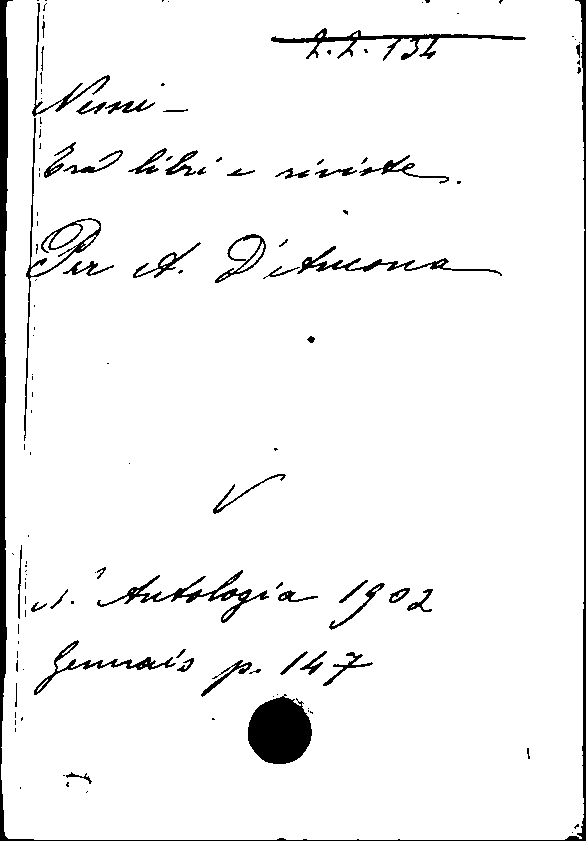 2.2.134
Nemi -
Tra libri e riviste.
Per A. D'Ancona
N.ª Antologia 1902
Gennaio p. 147